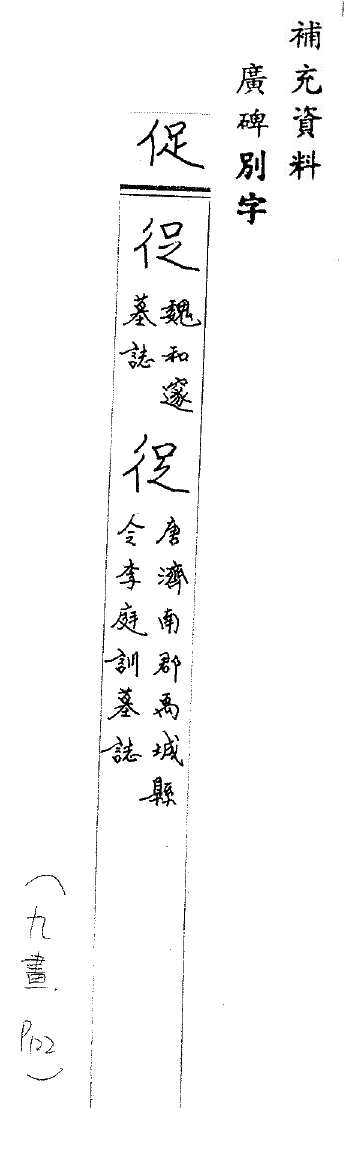 補充資料
廣碑別字
促
㑛
魏和邃
墓誌
㑛
唐濟南郡禹城縣
令李庭訓墓誌
(九畫. P122)